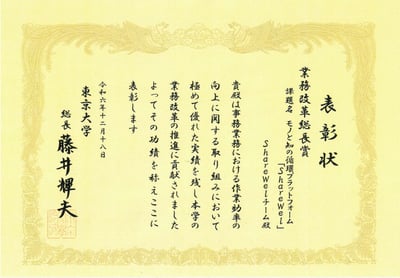 表彰状
業務改革総長賞
課題名 モノと知の循環プラットフォーム
「ShareWel」
ShareWelチーム殿
貴殿は事務業務における作業効率の
向上に関する取り組みにおいて
極めて優れた実績を残し本学の
業務改革の推進に貢献されました
よってその功績を称えここに
表彰します
令和六年十二月十八日
東京大学
総長 藤井輝夫